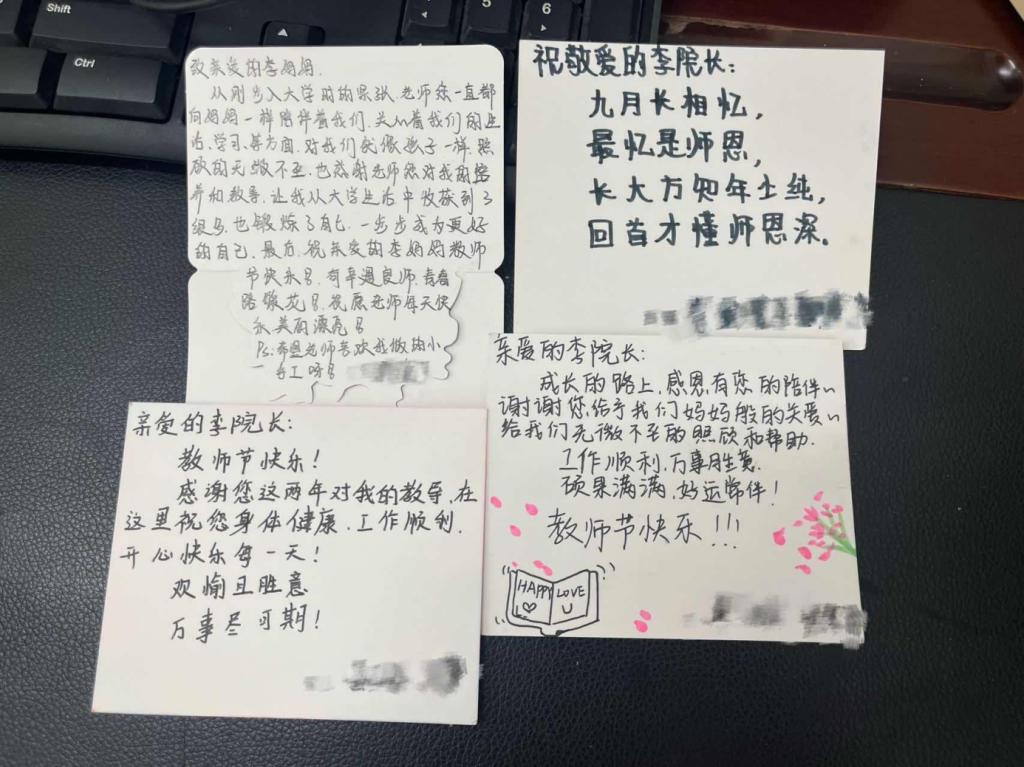 Shift
Ctrl
5
6
致亲爱的李妈妈.
从刚步入大学时的紧张,老师您一直都
向妈妈一样陪伴着我们,关心着我们的生
活、学习、等方面.对我们就像孩子一样.照
顾的无微不至.也感谢老师您对我的培
养和教导,让我从大学生活中收获到了
很多.也锻炼了自己.一步步成为更好
的自己.最后,祝亲爱的李妈妈教师
节快乐吖.有幸遇良师,青春
路繁花吖.祝愿老师每天快
乐,美丽漂亮吖
Ps:希望老师喜欢我做的小
手工呀吖
祝敬爱的李院长:
九月长相忆,
最忆是师恩,
长大方知年少纯,
回首才懂师恩深.
亲爱的李院长:
教师节快乐!
感谢您这两年对我的教导,在
这里祝您身体健康,工作顺利.
开心快乐每一天!
欢愉且胜意
万事尽可期!
亲爱的李院长:
成长的路上,感恩有您的陪伴~
谢谢您给予我们妈妈般的关爱~
给我们无微不至的照顾和帮助.
工作顺利,万事胜意.
硕果满满,好运常伴!
教师节快乐!!!
HAPPY LOVE
I U